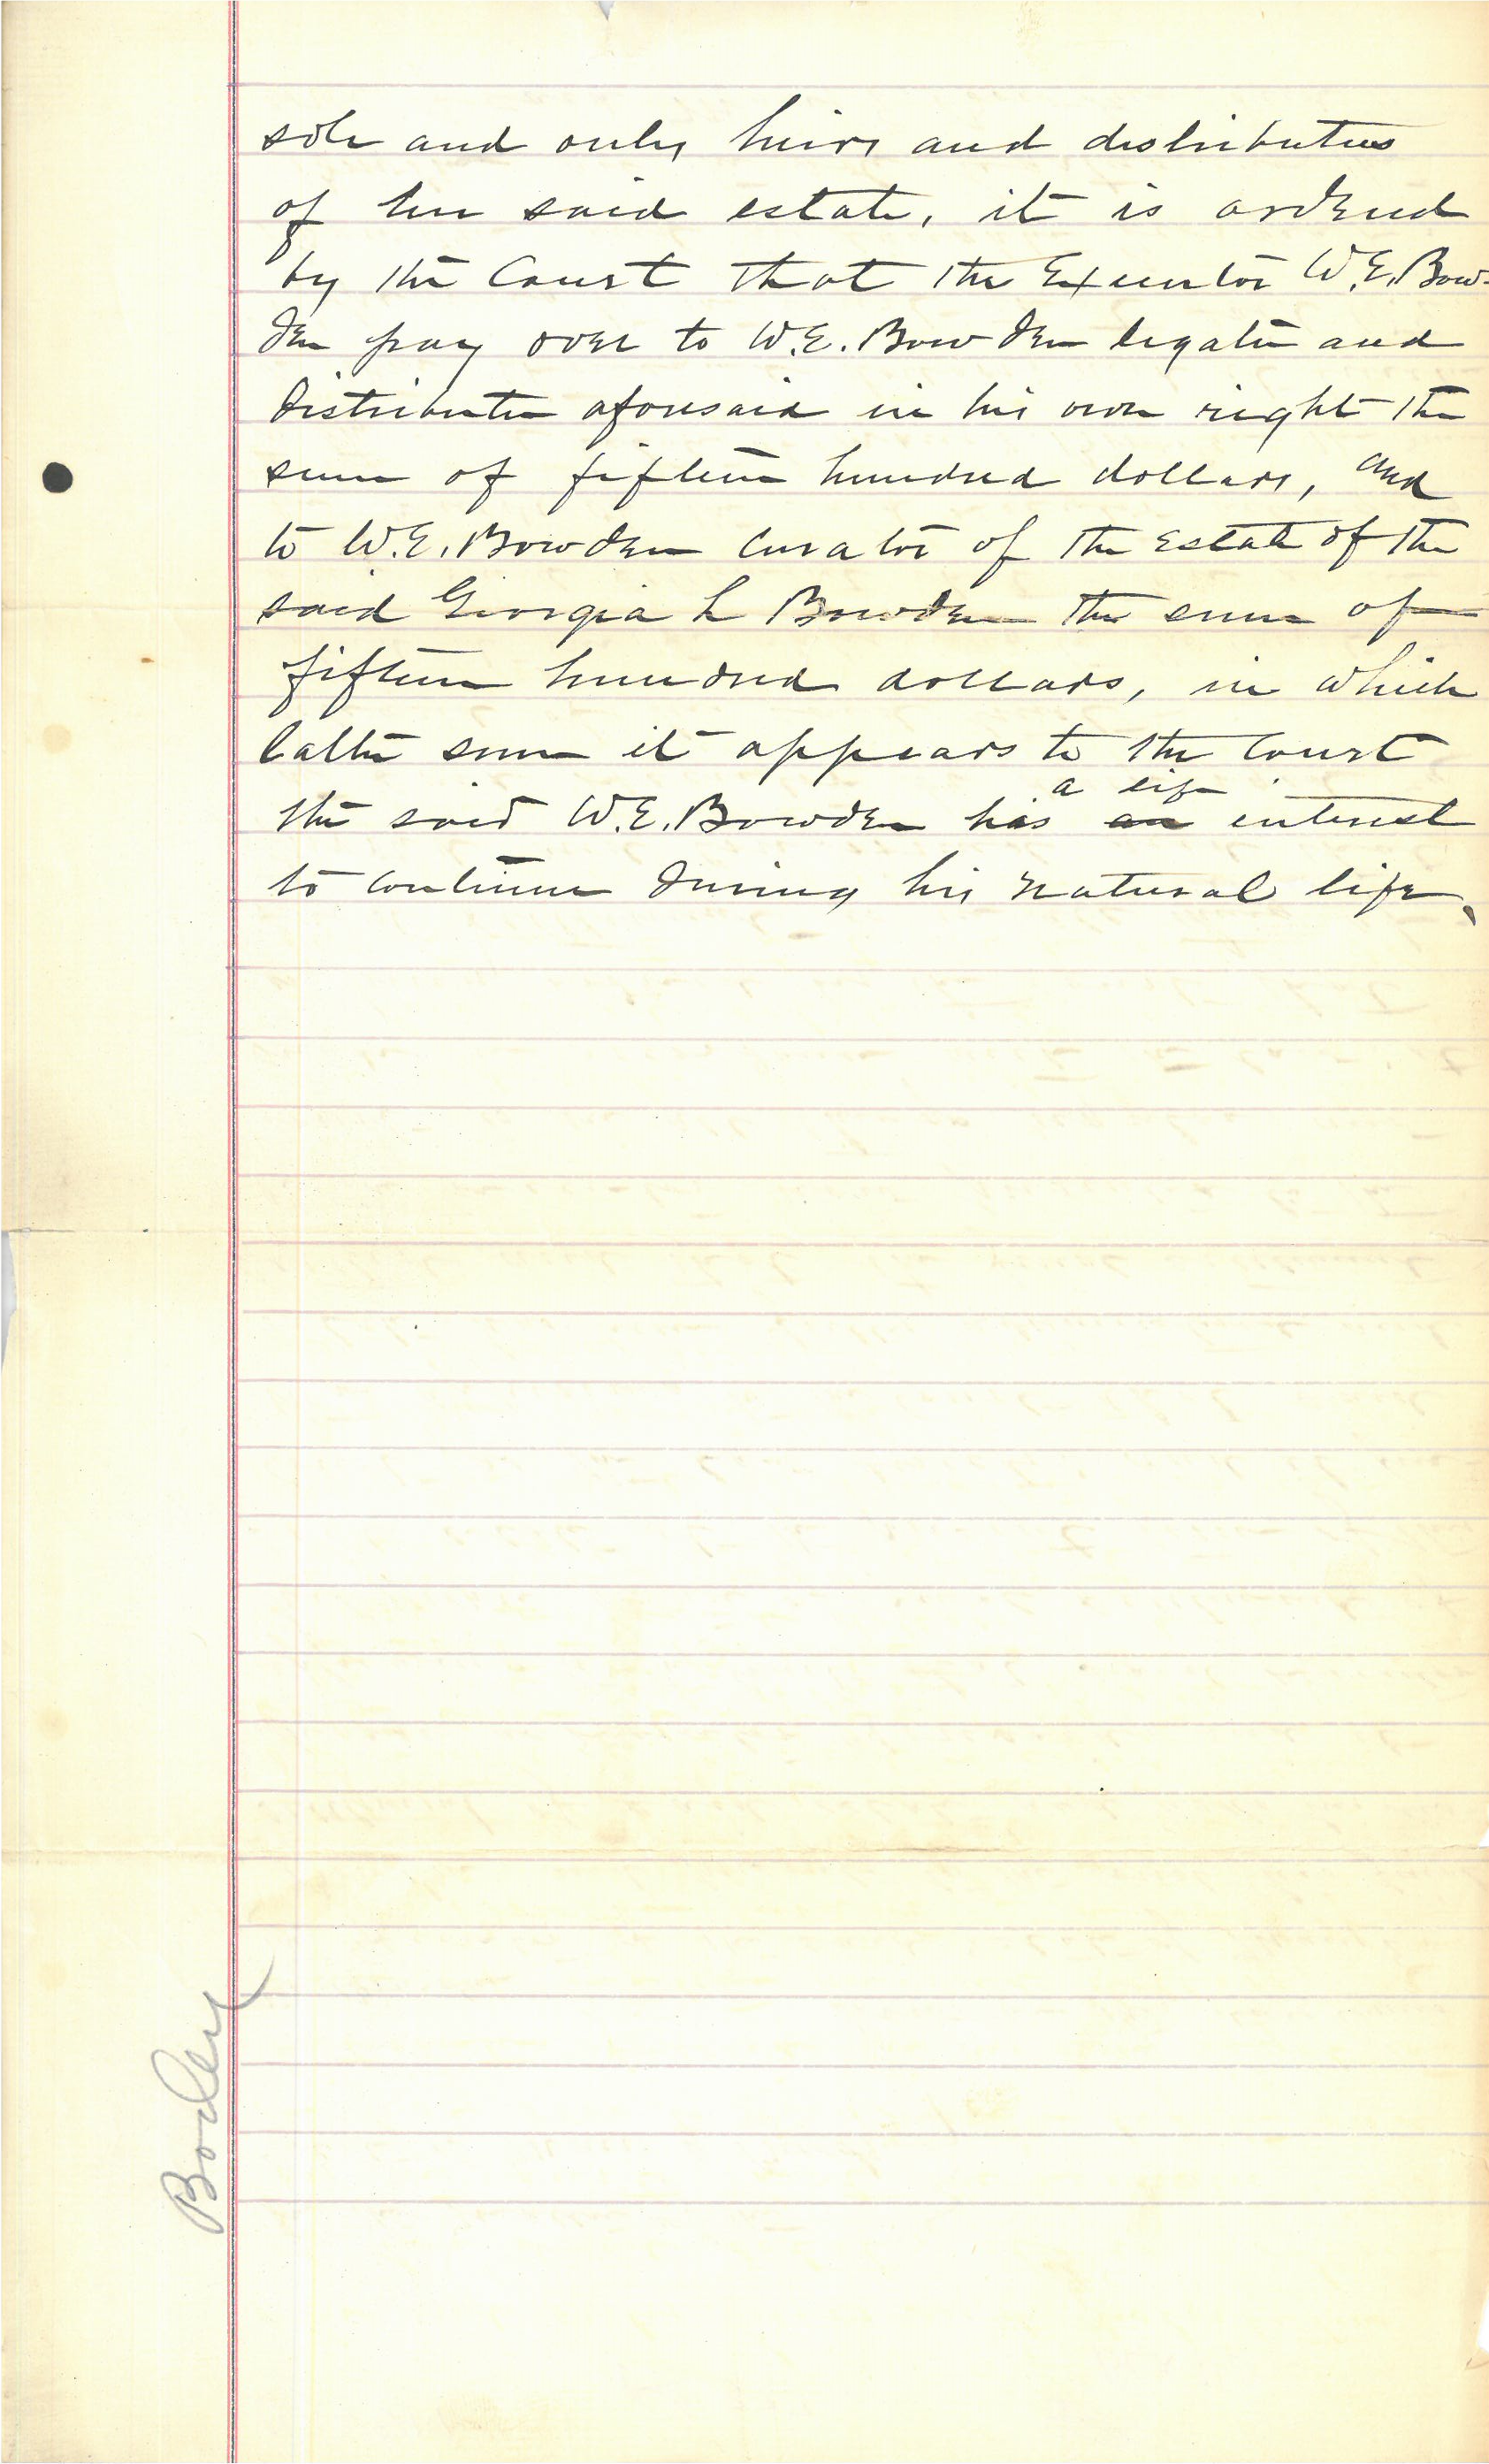 sole and only heirs and distributees
of her said estate, it is ordered
by the Court that the Executor W.E. Bow-
den pay over to W.E. Bowden legatee and
distributee aforesaid in his own right the
sum of fifteen hundred dollars, and
to W.E. Bowden Curator of the Estate of the
said Georgia L Bowden the sum of
fifteen hundred dollars, in which
latter sum it appears to the Court
a life
the said W.E. Bowden has an interest
to continue during his natural life.